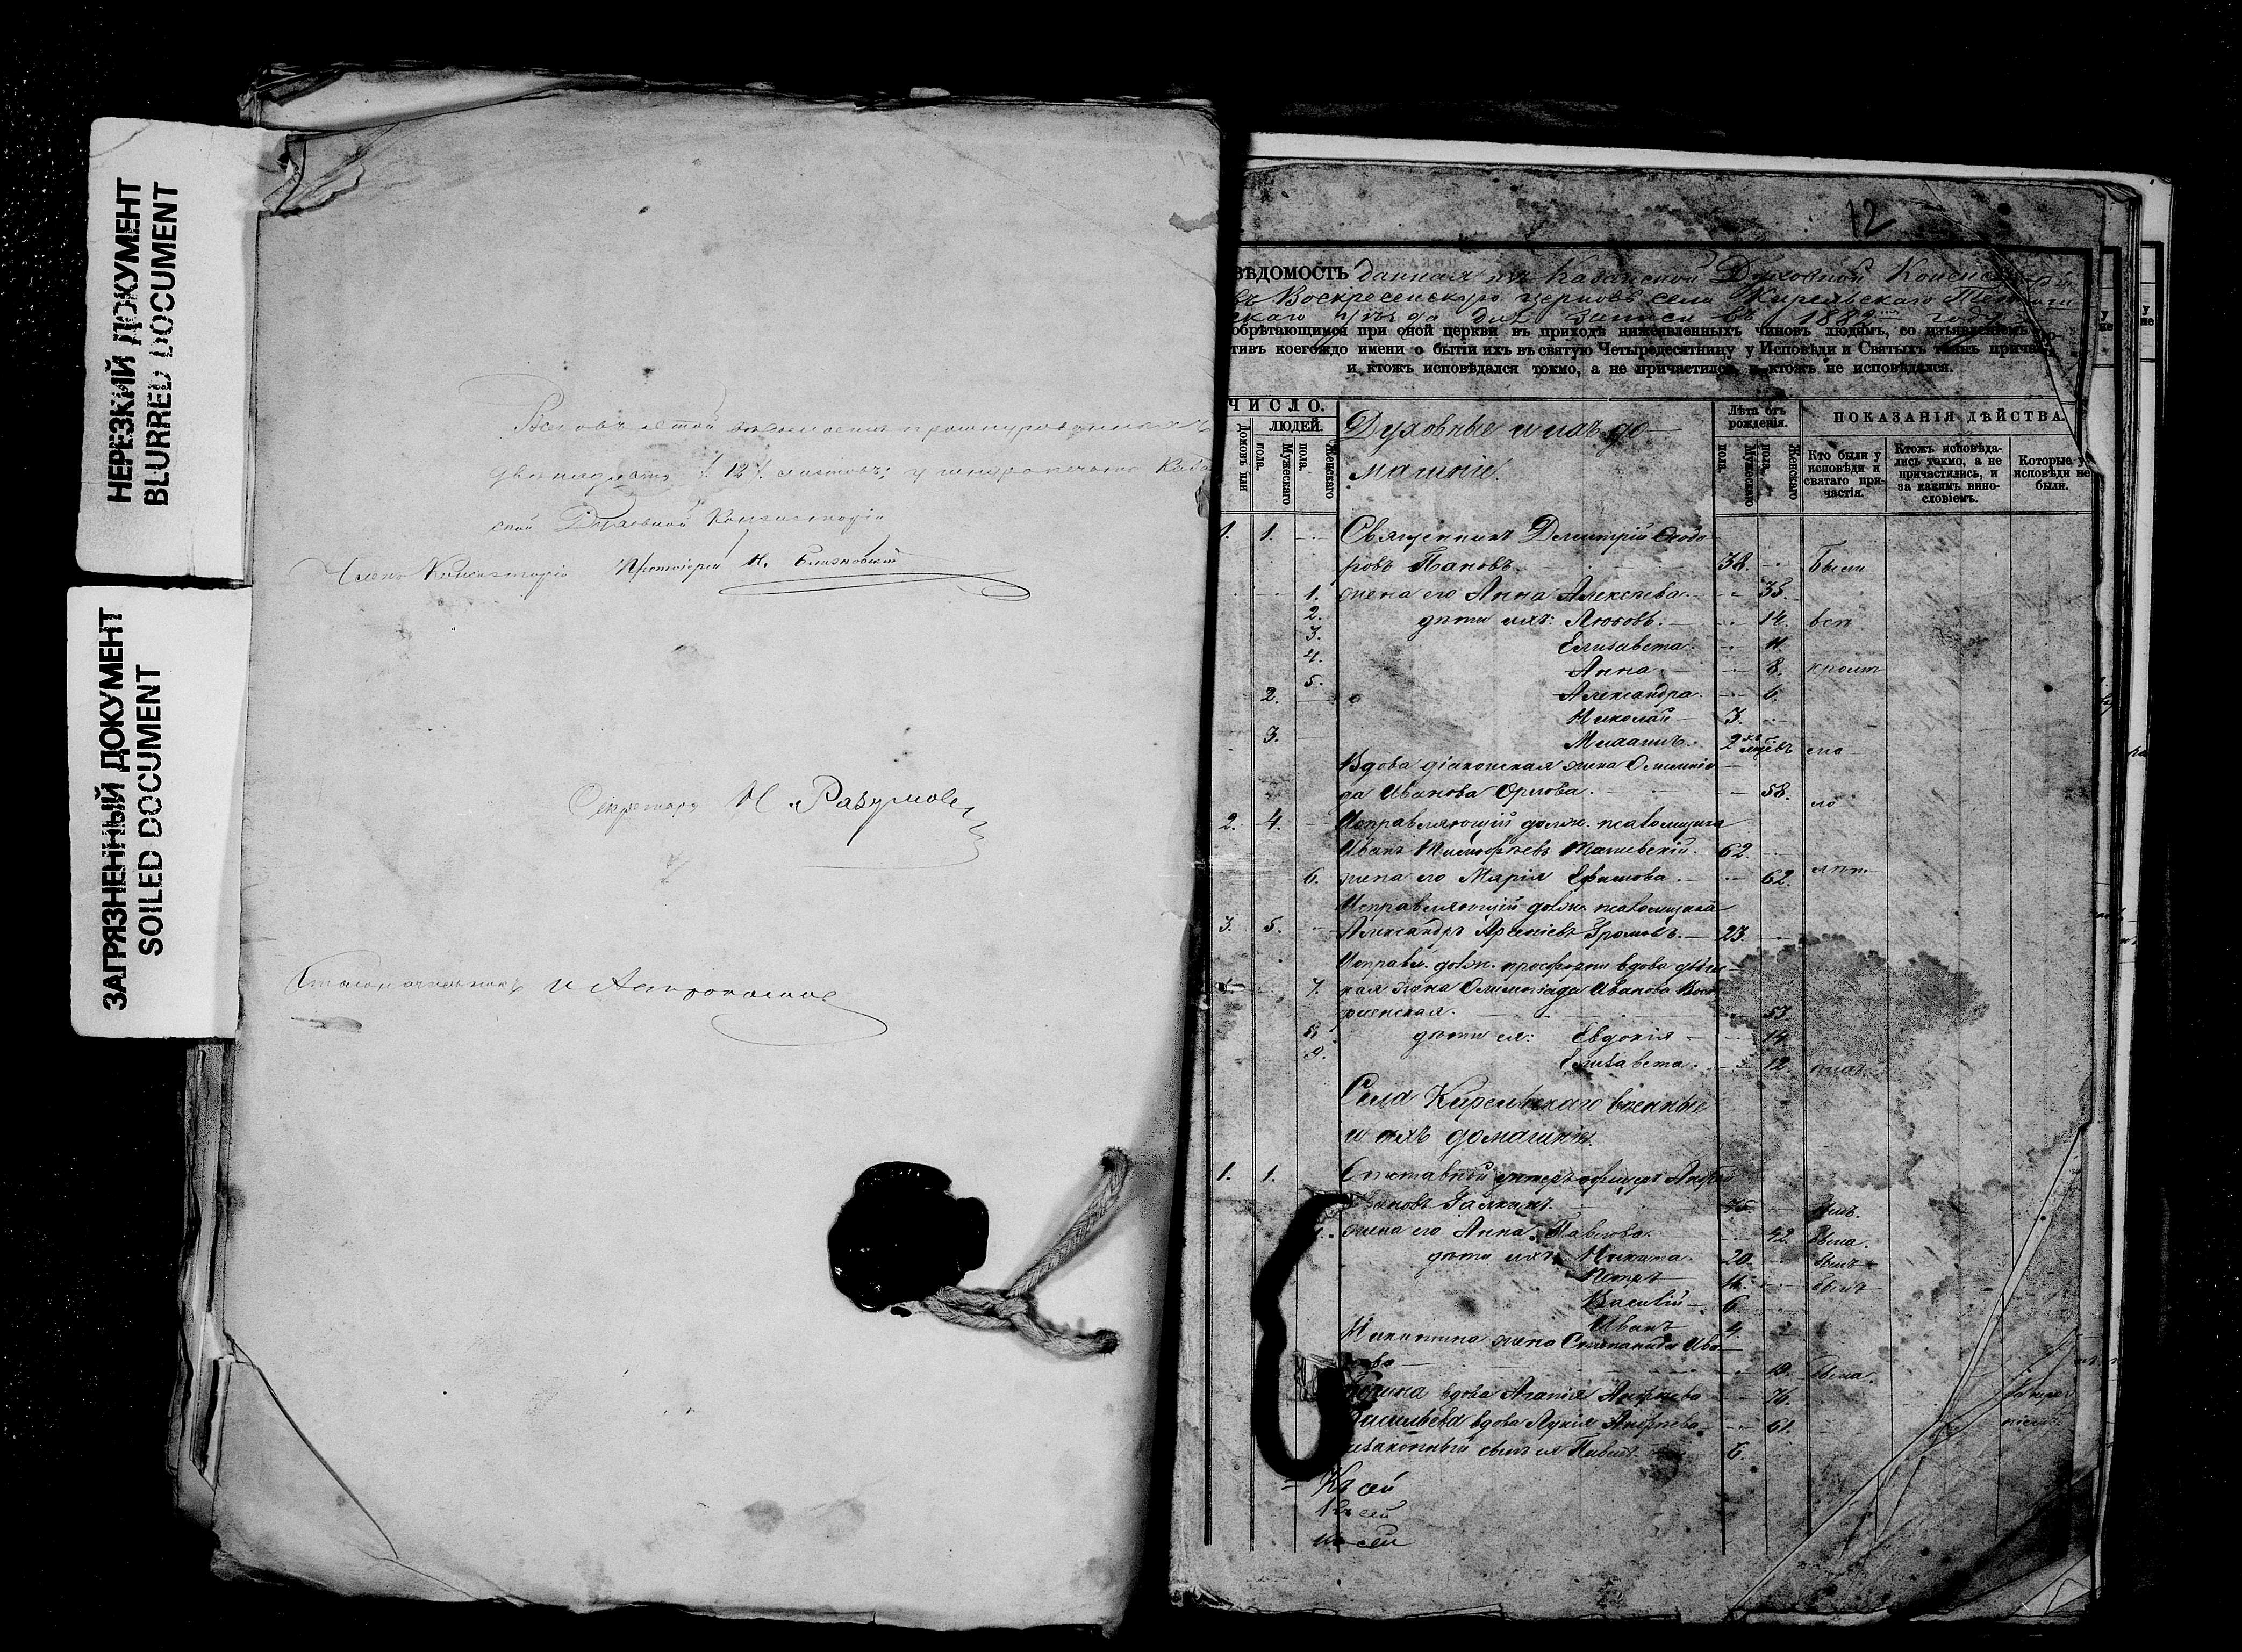 НЕРЕЗКИЙ ДОКУМЕНТ
BLURRED DOCUMENT
ЗАГРЯЗНЕННЫЙ ДОКУМЕНТ
SOILED DOCUMENT
Всего въ этой
двенадцать /12/. листовъ; у шнура печать Каза
ской Духовной Консисторіи
Членъ Консисторіи Протоіерей
Секретарь Н. Разумов
Столоначальникъ
12
ВѢДОМОСТЬ данная изъ Казанской Духовной Консисторіи
въ Воскресенскую церковь села Кирельскаго
скаго уѣзда для записи въ 1882 году
обрѣтающимся при оной церкви въ приходѣ нижеявленныхъ чиновъ людямъ, со изъявленіемъ
тивъ коегождо имени о бытіи ихъ въ святую Четыредесятницу у Исповѣди и Святыхъ таинъ прича
и ктожъ исповѣдался токмо, а не причастился, и ктожъ не исповѣдался.
ЧИСЛО.
ЛЮДЕЙ.
Домовъ
Мужескаго пола.
Женскаго пола.
Духовные и ихъ до
машніе.
Лѣта отъ рожденія.
Мужескаго пола.
Женскаго пола.
ПОКАЗАНІЯ ДѢЙСТВА.
Кто были у исповѣди и святаго причастія.
Ктожъ исповѣдались токмо, а не причастились, и за какимъ винословіемъ.
Которые у исповѣди не были.
1. 1. Священникъ Димитрій Ѳеодо
ровъ Пановъ. 38. Были
1. жена его Анна Алексѣева. 33.
2. дѣти ихъ: Любовь. 14. всѣ
3. Елизавета. 11.
4. Анна 8. кромѣ
5. Александра. 6.
2. Николай 3.
3. Михаилъ. 2 мѣс.
Вдова діаконская жена Олимпіа
да Иванова Орлова. 58.
2. 4. Исправляющій долж. псаломщика
Иванъ 62.
6. жена его Марія Ефимова. 62.
Исправляющій долж. псаломщика
3. 5. Александръ Арсеніевъ Громовъ. 23.
Исправл. долж. просфорни вдова
7. кая жена Олимпіада Иванова Воск
ресенская. 53
8. дѣти ея: Евдокія 14.
9. Елизавета. 12.
Села Кирельскаго военные
и ихъ домашніе.
1. 1. Отставной унтеръ офицеръ Андрей
Ивановъ Галкинъ. 45. Былъ.
жена его Анна Павлова. 42. Была.
дѣти ихъ: Никита. 20. Былъ
Петръ Былъ
Василій 6
Иванъ 4.
Никитина жена Степанида Ива
нова 19. Была.
вдова Агапія Андреева 76.
Васильева вдова Лукія Андреева 61.
незаконный сынъ ея Павелъ 6.
Къ сей
Къ сей
къ сей